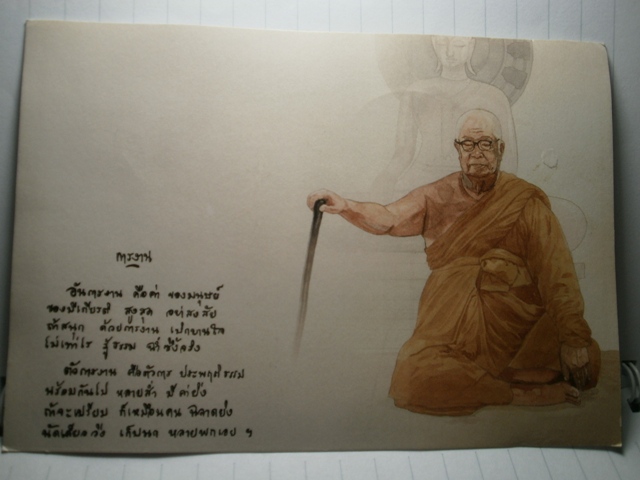 การงาน
อันการงาน คือค่า ของมนุษย์
ของมีเกียรติ สูงสุด อย่าสงสัย
ถ้าสนุก ด้วยการงาน เบิกบานใจ
ไม่เท่าไร รู้ธรรม ฉ่ำซึ้งจริง
ตัวการงาน คือตัวการ ประพฤติธรรม
พร้อมกันไป หลายส่ำ มีค่ายิ่ง
ถ้าจะเปรียบ ก็เหมือนคน ฉลาดยิง
นัดเดียววิ่ง เก็บนก หลายพกเอย ฯ